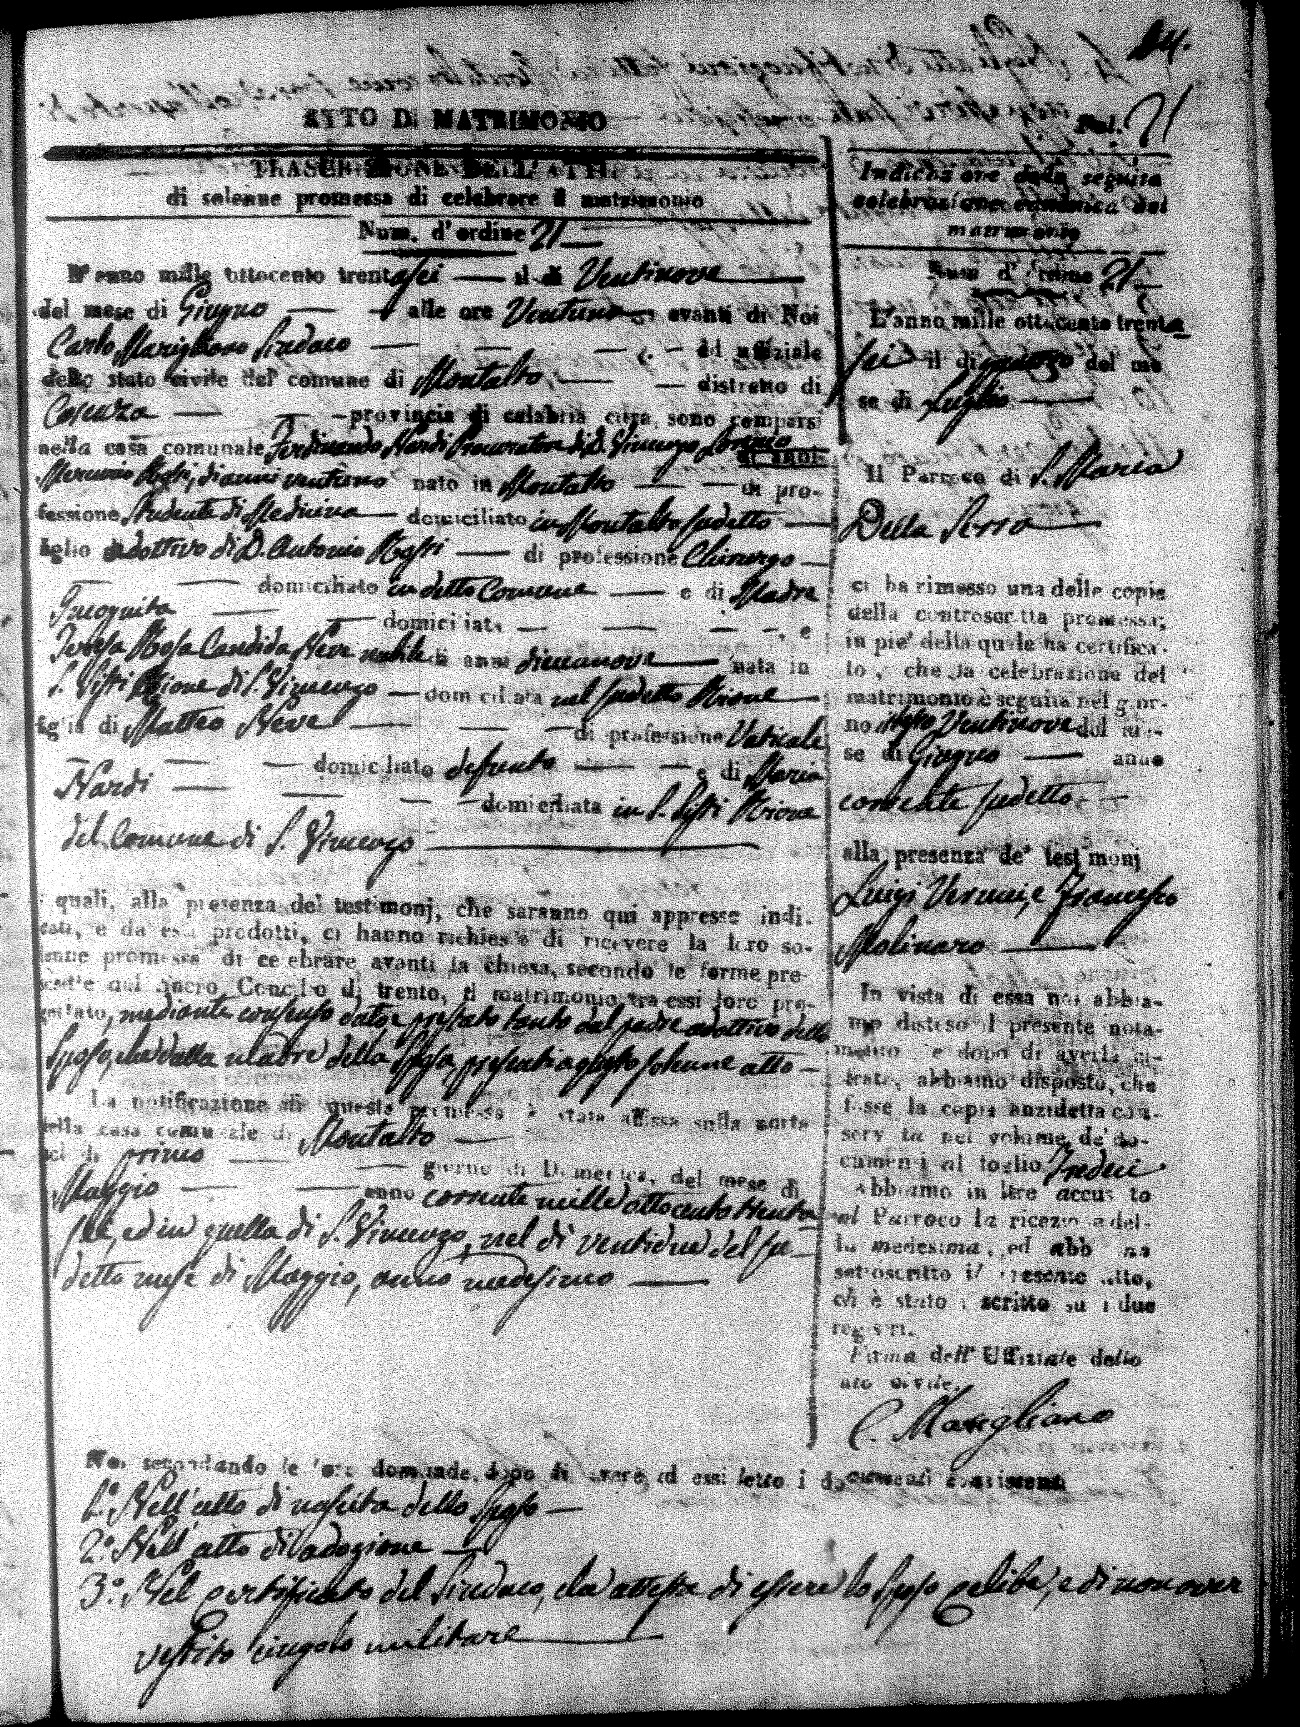 84.
Fol. 21
ATTO DI MATRIMONIO
TRASCRIZIONE DELL'ATTO
di solenne promessa di celebrare il matrimonio
Num. d'ordine 21
L'anno mille ottocento trentasei il di Ventinove
del mese di Giugno alle ore Ventuno avanti di Noi
Carlo Marigliano Sindaco ed uffiziale
dello stato civile del comune di Montalto distretto di
Cosenza provincia di calabria citra, sono comparsi
nella casa comunale Ferdinando Nardi Procuratore di D. Vincenzo
di anni
di anni ventuno nato in Montalto di pro-
fessione Studente di Medicina domiciliato in Montalto sudetto
figlio adottivo di D. Antonio di professione Chirurgo
domiciliato in detto Comune e di Madre
Incognita domiciliata e
Teresa Rosa Candida Neve nubile di anni diecianove nata in
S. Sisti Rione di S. Vincenzo domiciliata nel sudetto Rione
figlia di Matteo Neve di professione Vaticale
domiciliato defunto e di Maria
Nardi domiciliata in S. Sisti Rione
del Comune di S. Vincenzo
i quali, alla presenza dei testimonj, che saranno qui appresso indi-
cati, e da essi prodotti, ci hanno richiesto di ricevere la loro so-
lenne promessa di celebrare avanti la chiesa, secondo le forme pre-
scritte dal sacro Concilio di trento, il matrimonio tra essi loro pro-
gettato, mediante consenso dato e prestato tanto dal padre adottivo dello
Sposo, che dalla madre della Sposa, presenti a questo solenne atto
La notificazione di questa promessa è stata affissa sulla porta
della casa comunale di Montalto
nel di primo giorno di Domenica, del mese di
Maggio anno corrente mille ottocento trenta
sei, ed in quella di S. Vincenzo, nel dì ventidue del su
detto mese di Maggio, anno medesimo
Indicazione della seguita
celebrazione canonica del
matrimonio
Num d'ordine 21
L'anno mille ottocento trenta
sei il di quattro del me
se di Luglio
Il Parroco di S. Maria
Della Serra
ci ha rimesso una delle copie
della controscritta promessa;
in pie' della quale ha certifica-
to, che la celebrazione del
matrimonio è seguita nel gior-
no Ventinove del me-
se di Giugno anno
corrente sudetto
alla presenza de' testimonj
Luigi Vernui, e Francesco
Molinaro
In vista di essa noi abbia-
mo disteso il presente nota-
mento e dopo di averla ci-
frata, abbiamo disposto, che
fosse la copia anzidetta con-
servata nel volume de' do-
cumenti al foglio Tredici
Abbiamo in oltre accusato
al Parroco la ricezione del-
la medesima, ed abbiamo
sottoscritto il presente atto,
ch'è stato iscritto su i due
registri.
Firma dell' Uffiziale dello
stato civile.
C. Marigliano
Noi secondando le loro domande, dopo di avere ad essi letto i documenti consistenti
1.° Nell'atto di nascita dello Sposo
2.° Nell'atto di adozione
3.° Nel certificato del Sindaco, che attesta di essere lo Sposo celibe, e di non aver
vestito cingolo militare